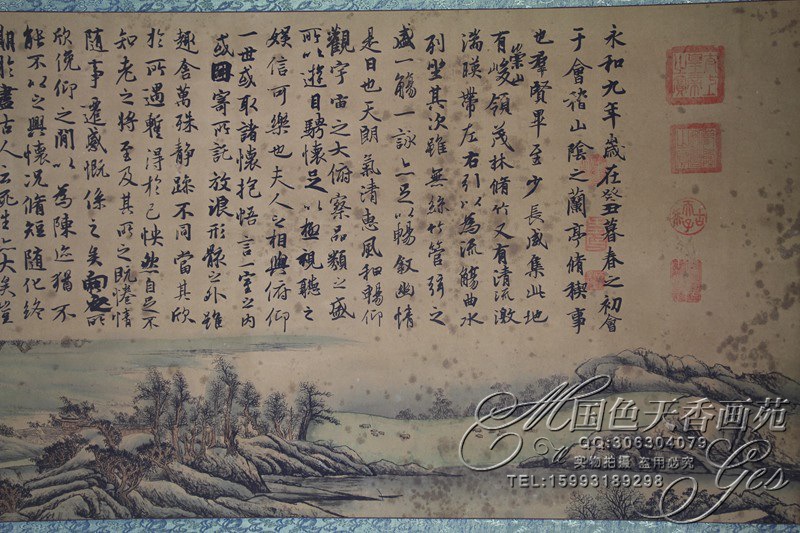 永和九年歲在癸丑暮春之初會
于會稽山陰之蘭亭脩稧事
也羣賢畢至少長咸集此地
有崇山峻領茂林脩竹又有清流激
湍暎帶左右引以為流觴曲水
列坐其次雖無絲竹管弦之
盛一觴一詠亦足以暢叙幽情
是日也天朗氣清惠風和暢仰
觀宇宙之大俯察品類之盛
所以遊目騁懷足以極視聽之
娛信可樂也夫人之相與俯仰
一世或取諸懷抱悟言一室之內
或因寄所託放浪形骸之外雖
趣舍萬殊靜躁不同當其欣
於所遇暫得於己怏然自足不
知老之將至及其所之既惓情
隨事遷感慨係之矣向之所
欣俛仰之閒以為陳迹猶不
能不以之興懷況脩短隨化終
期於盡古人云死生亦大矣豈
國色天香画苑
QQ:306304079
实物拍摄 盗用必究
TEL:15993189298